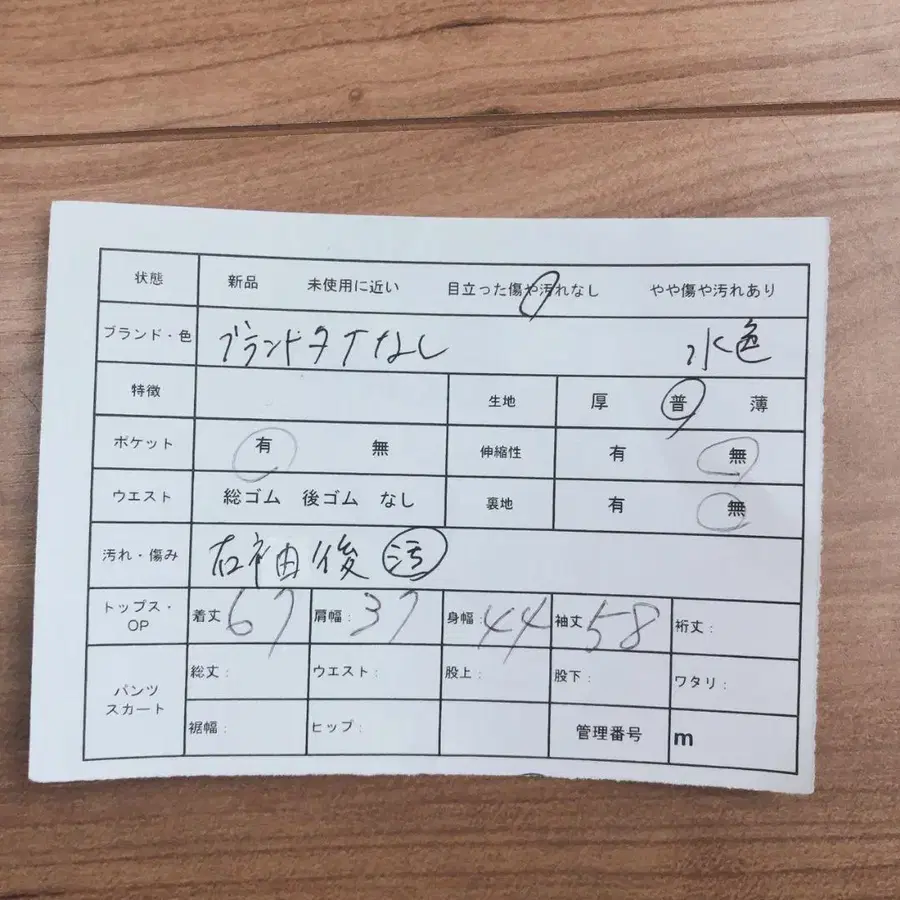 状態 新品 未使用に近い 目立った傷や汚れなし やや傷や汚れあり
ブランド・色 ブランドタグなし 水色
特徴 生地 厚 普 薄
ポケット 有 無 伸縮性 有 無
ウエスト 総ゴム 後ゴム なし 裏地 有 無
汚れ・傷み 右袖後 汚
トップス・OP 着丈 67 肩幅: 37 身幅: 44 袖丈 58 裄丈:
パンツ スカート 総丈: ウエスト: 股上: 股下: ワタリ:
裾幅: ヒップ: 管理番号 m